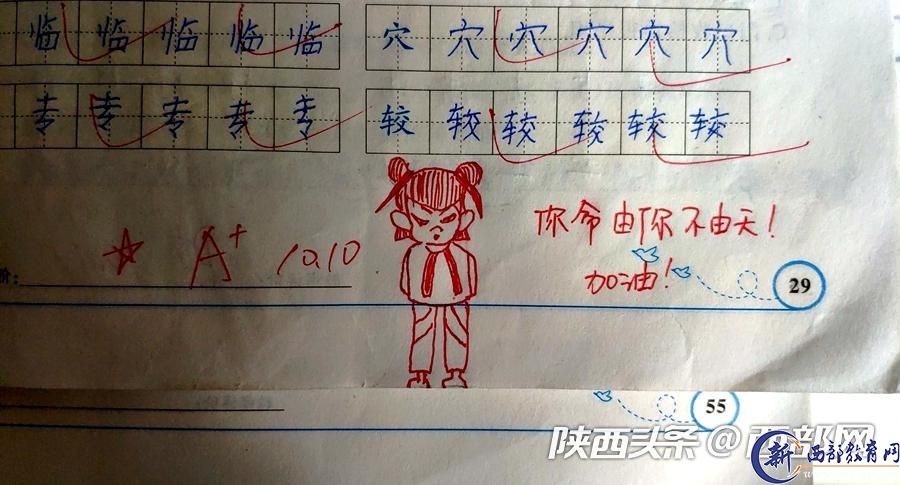 临 临 临 临 临 穴 穴 穴 穴 穴 穴
专 专 专 专 专 较 较 较 较 较 较
你命由你不由天!
A+ 10.10
加油!
价:
29
55
陕西头条@西部网
新 西部教育网